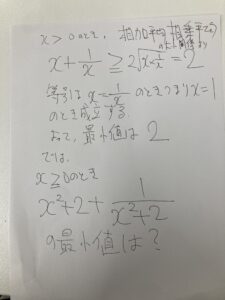 x > 0のとき, 相加平均相乗平均
の大小関係より
x + 1/x ≧ 2√(x × 1/x) = 2
等号は x = 1/x のときつまり x = 1
のとき成立する.
よって, 最小値は 2
では,
x ≧ 0のとき
x²+2+ 1/(x²+2)
の最小値は?